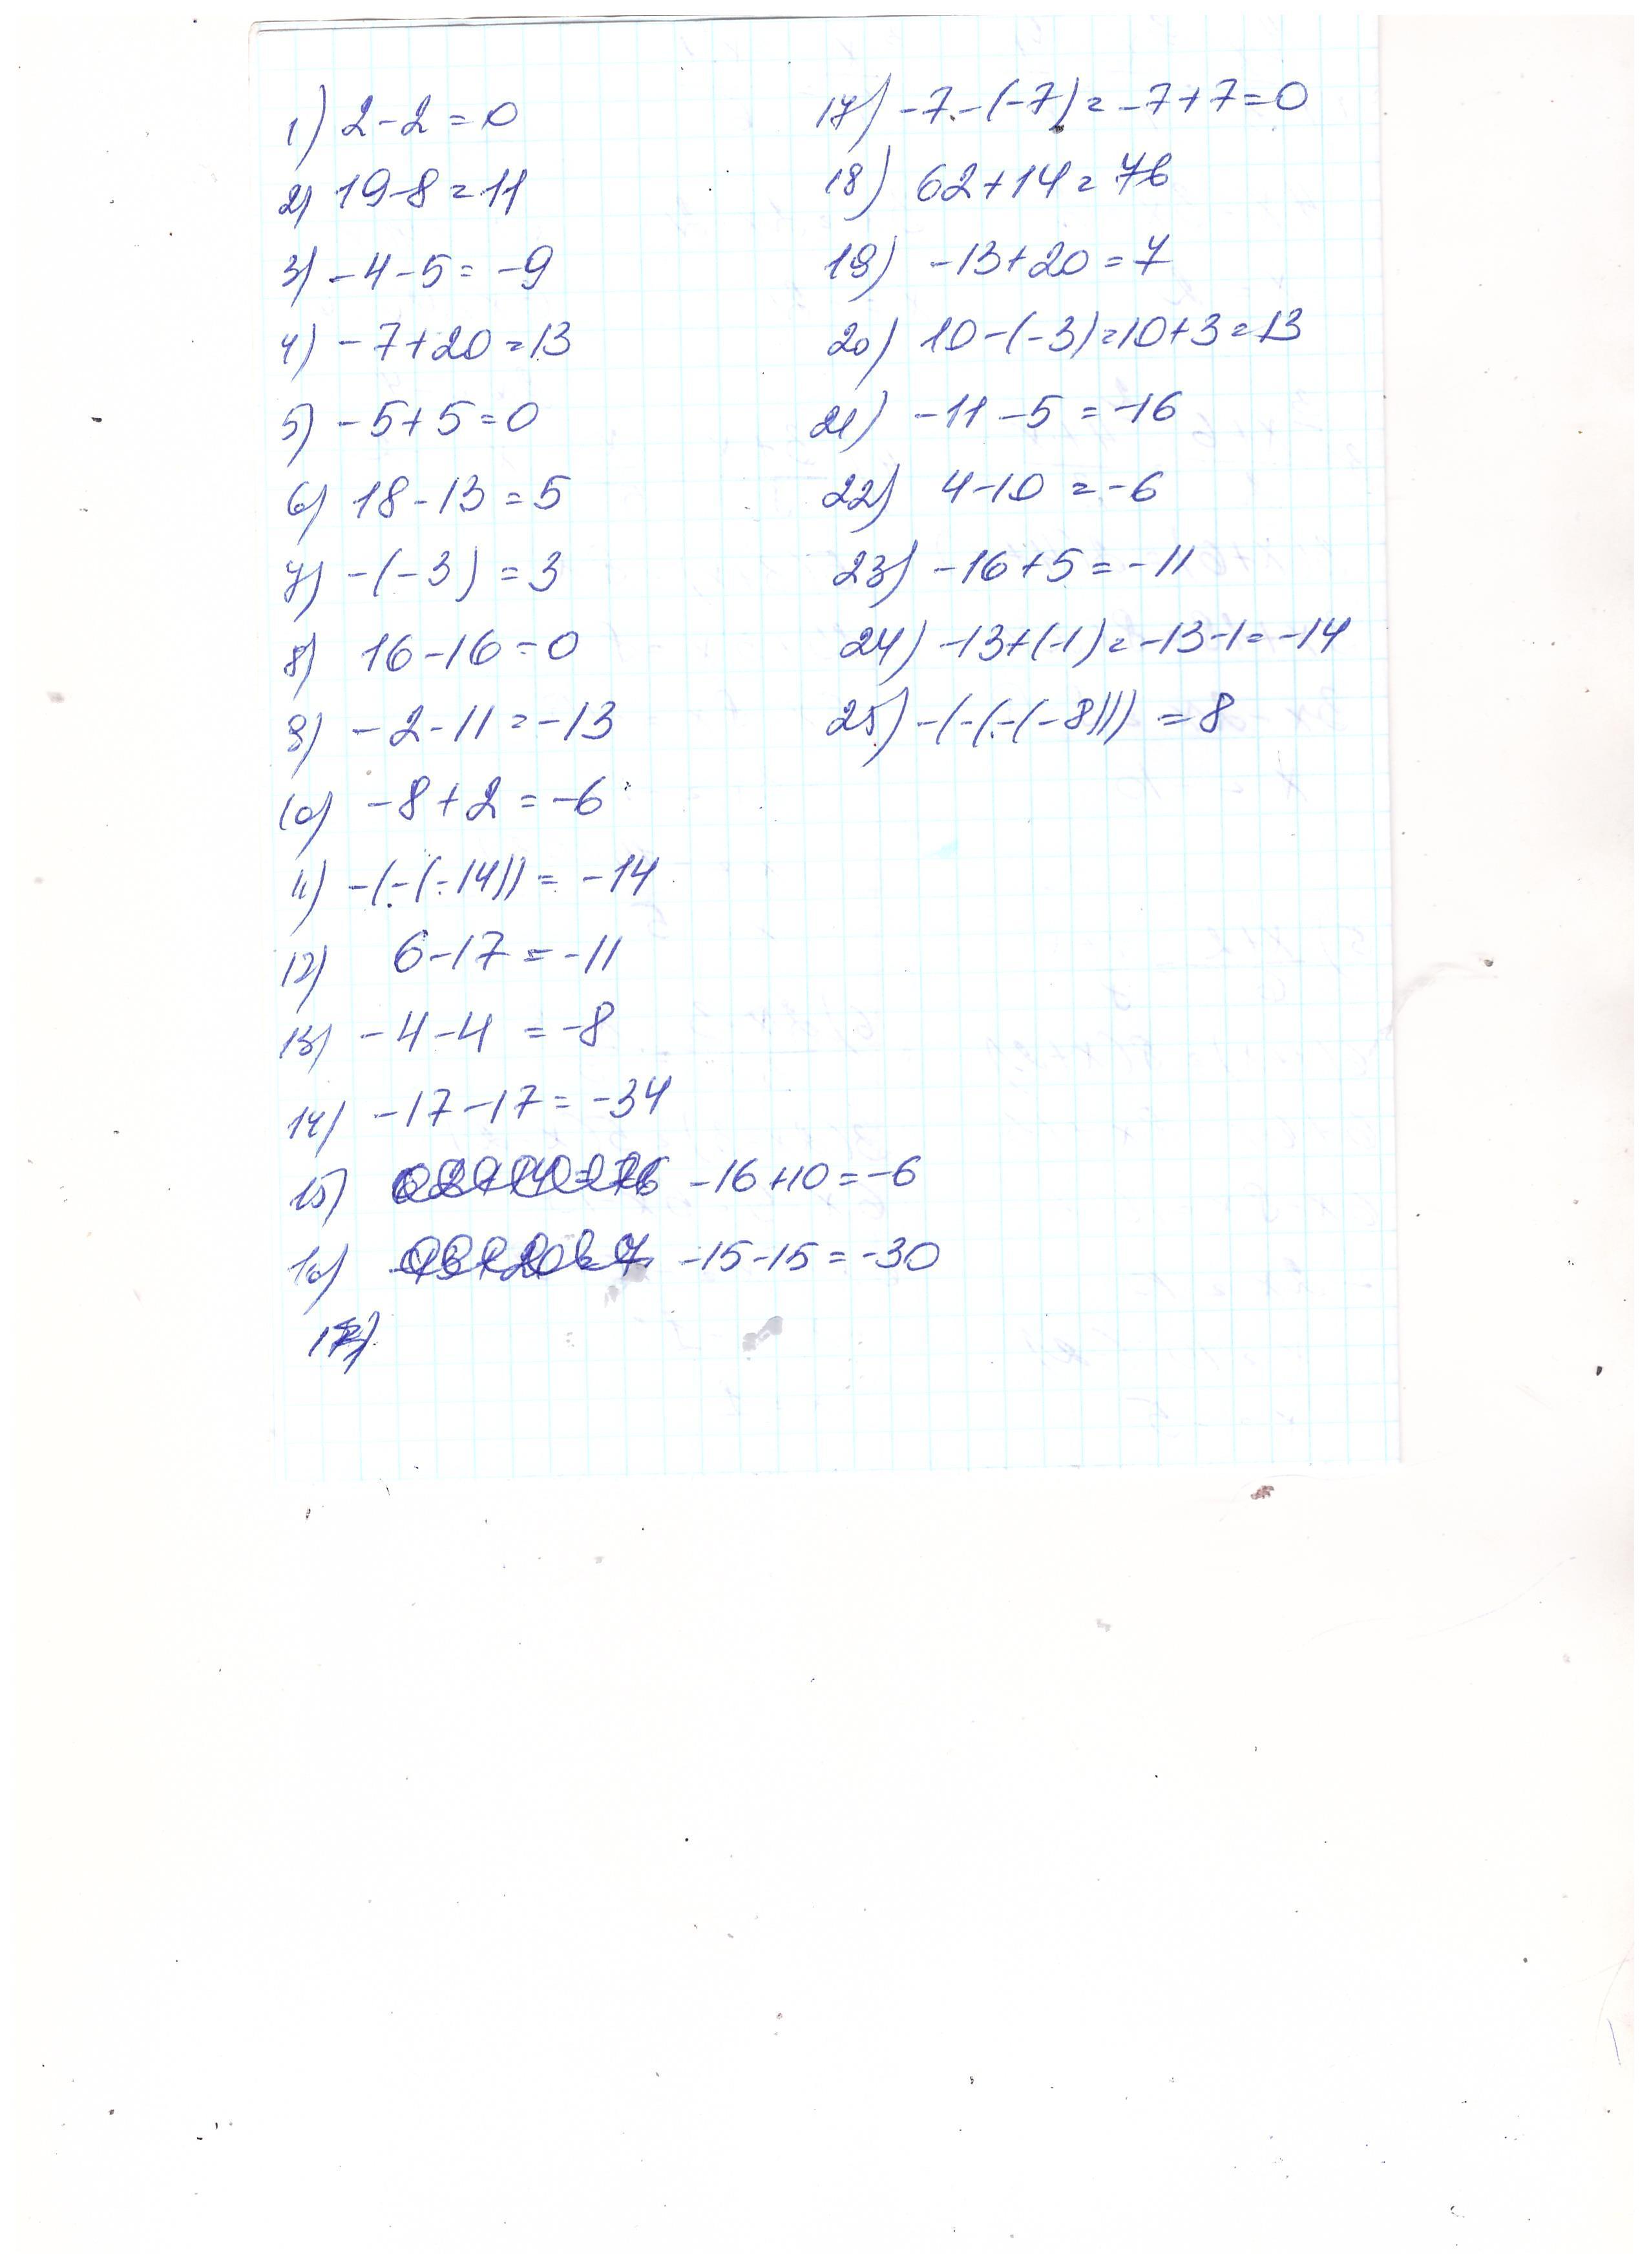 1) 2-2=0
2) 19-8=11
3) -4-5=-9
4) -7+20=13
5) -5+5=0
6) 18-13=5
7) -(-3)=3
8) 16-16=0
9) -2-11=-13
10) -8+2=-6
11) -(-(-14))=-14
12) 6-17=-11
13) -4-4=-8
14) -17-17=-34
15) -16+10=-6
16) -15-15=-30
17) -7-(-7)=-7+7=0
18) 62+14=76
19) -13+20=7
20) 10-(-3)=10+3=13
21) -11-5=-16
22) 4-10=-6
23) -16+5=-11
24) -13+(-1)=-13-1=-14
25) -(-(-(-8)))=8